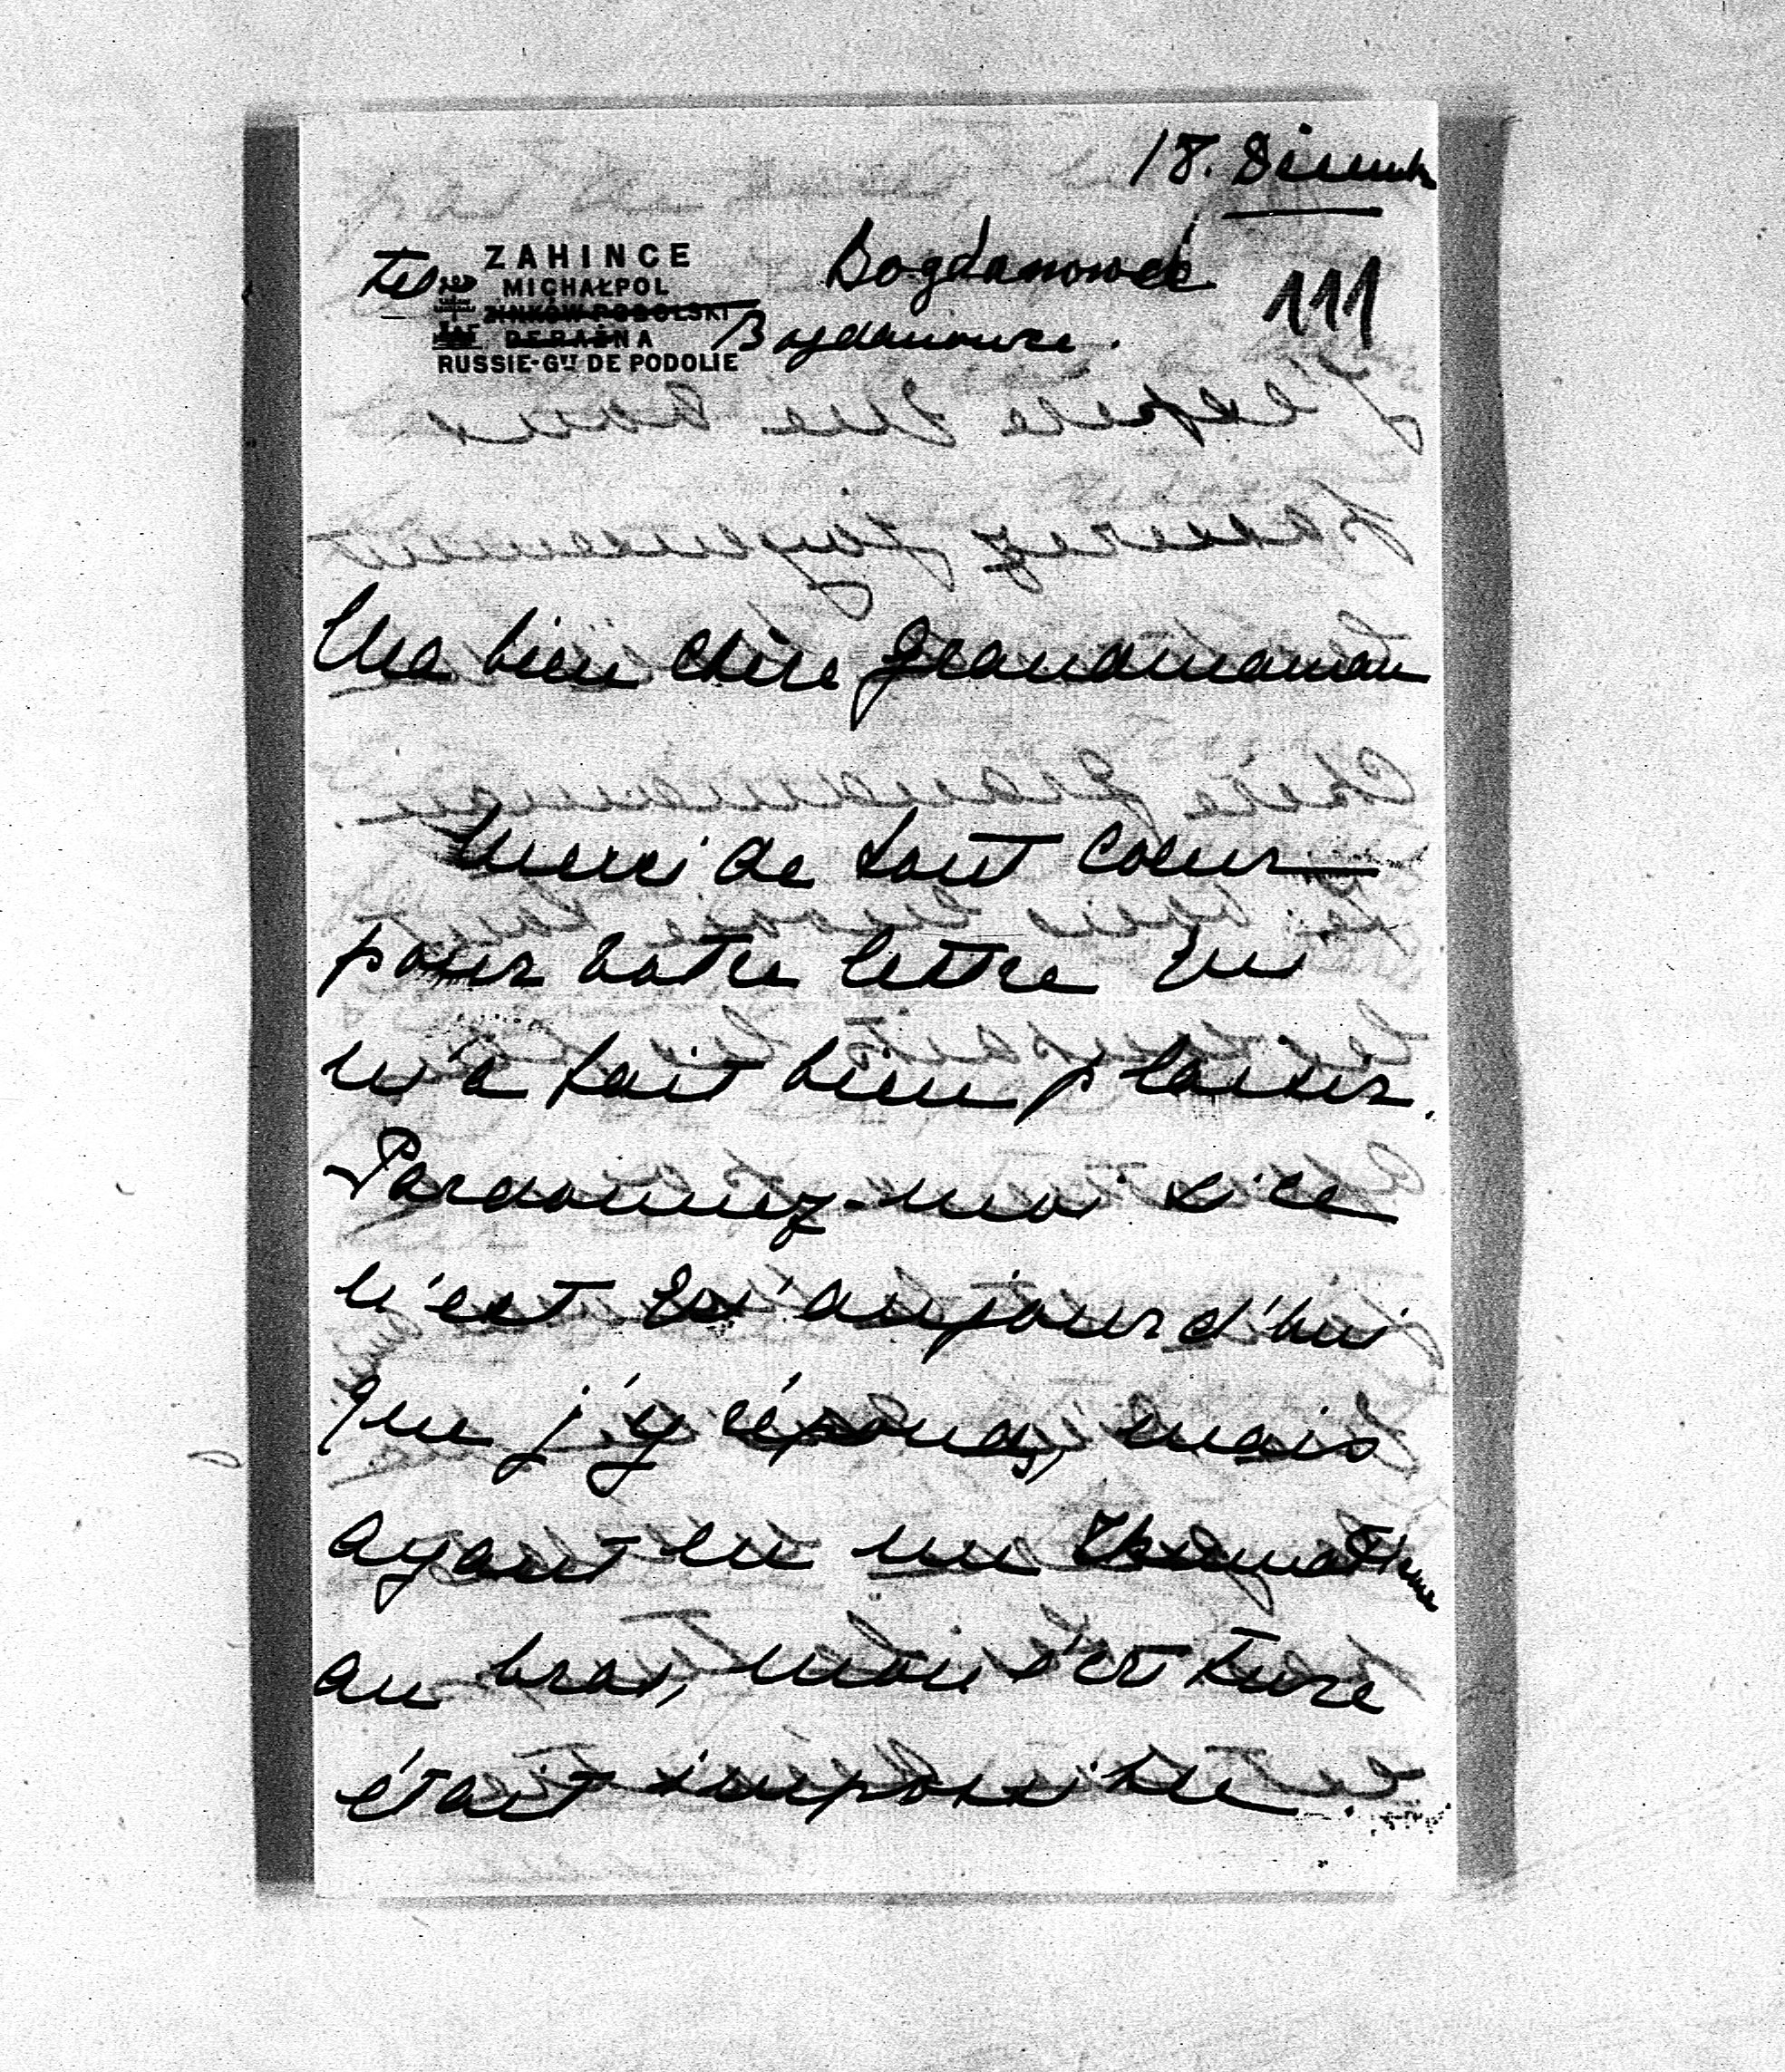 18. Décemb
ZAHINCE
MICHAŁPOL
ZINKÓW-PODOLSKI
DERAŻNA
RUSSIE-Gvt DE PODOLIE
Bogdanowce
Bogdanowce.
111
Ma bien chère Grandmaman
Merci de tout coeur
pour votre lettre qui
m'a fait bien plaisir.
Pardonnez-moi si ce
n'est qu'aujourd'hui
que j'y réponds, mais
ayant eu un rhumatisme
au bras, mon écriture
était impossible.